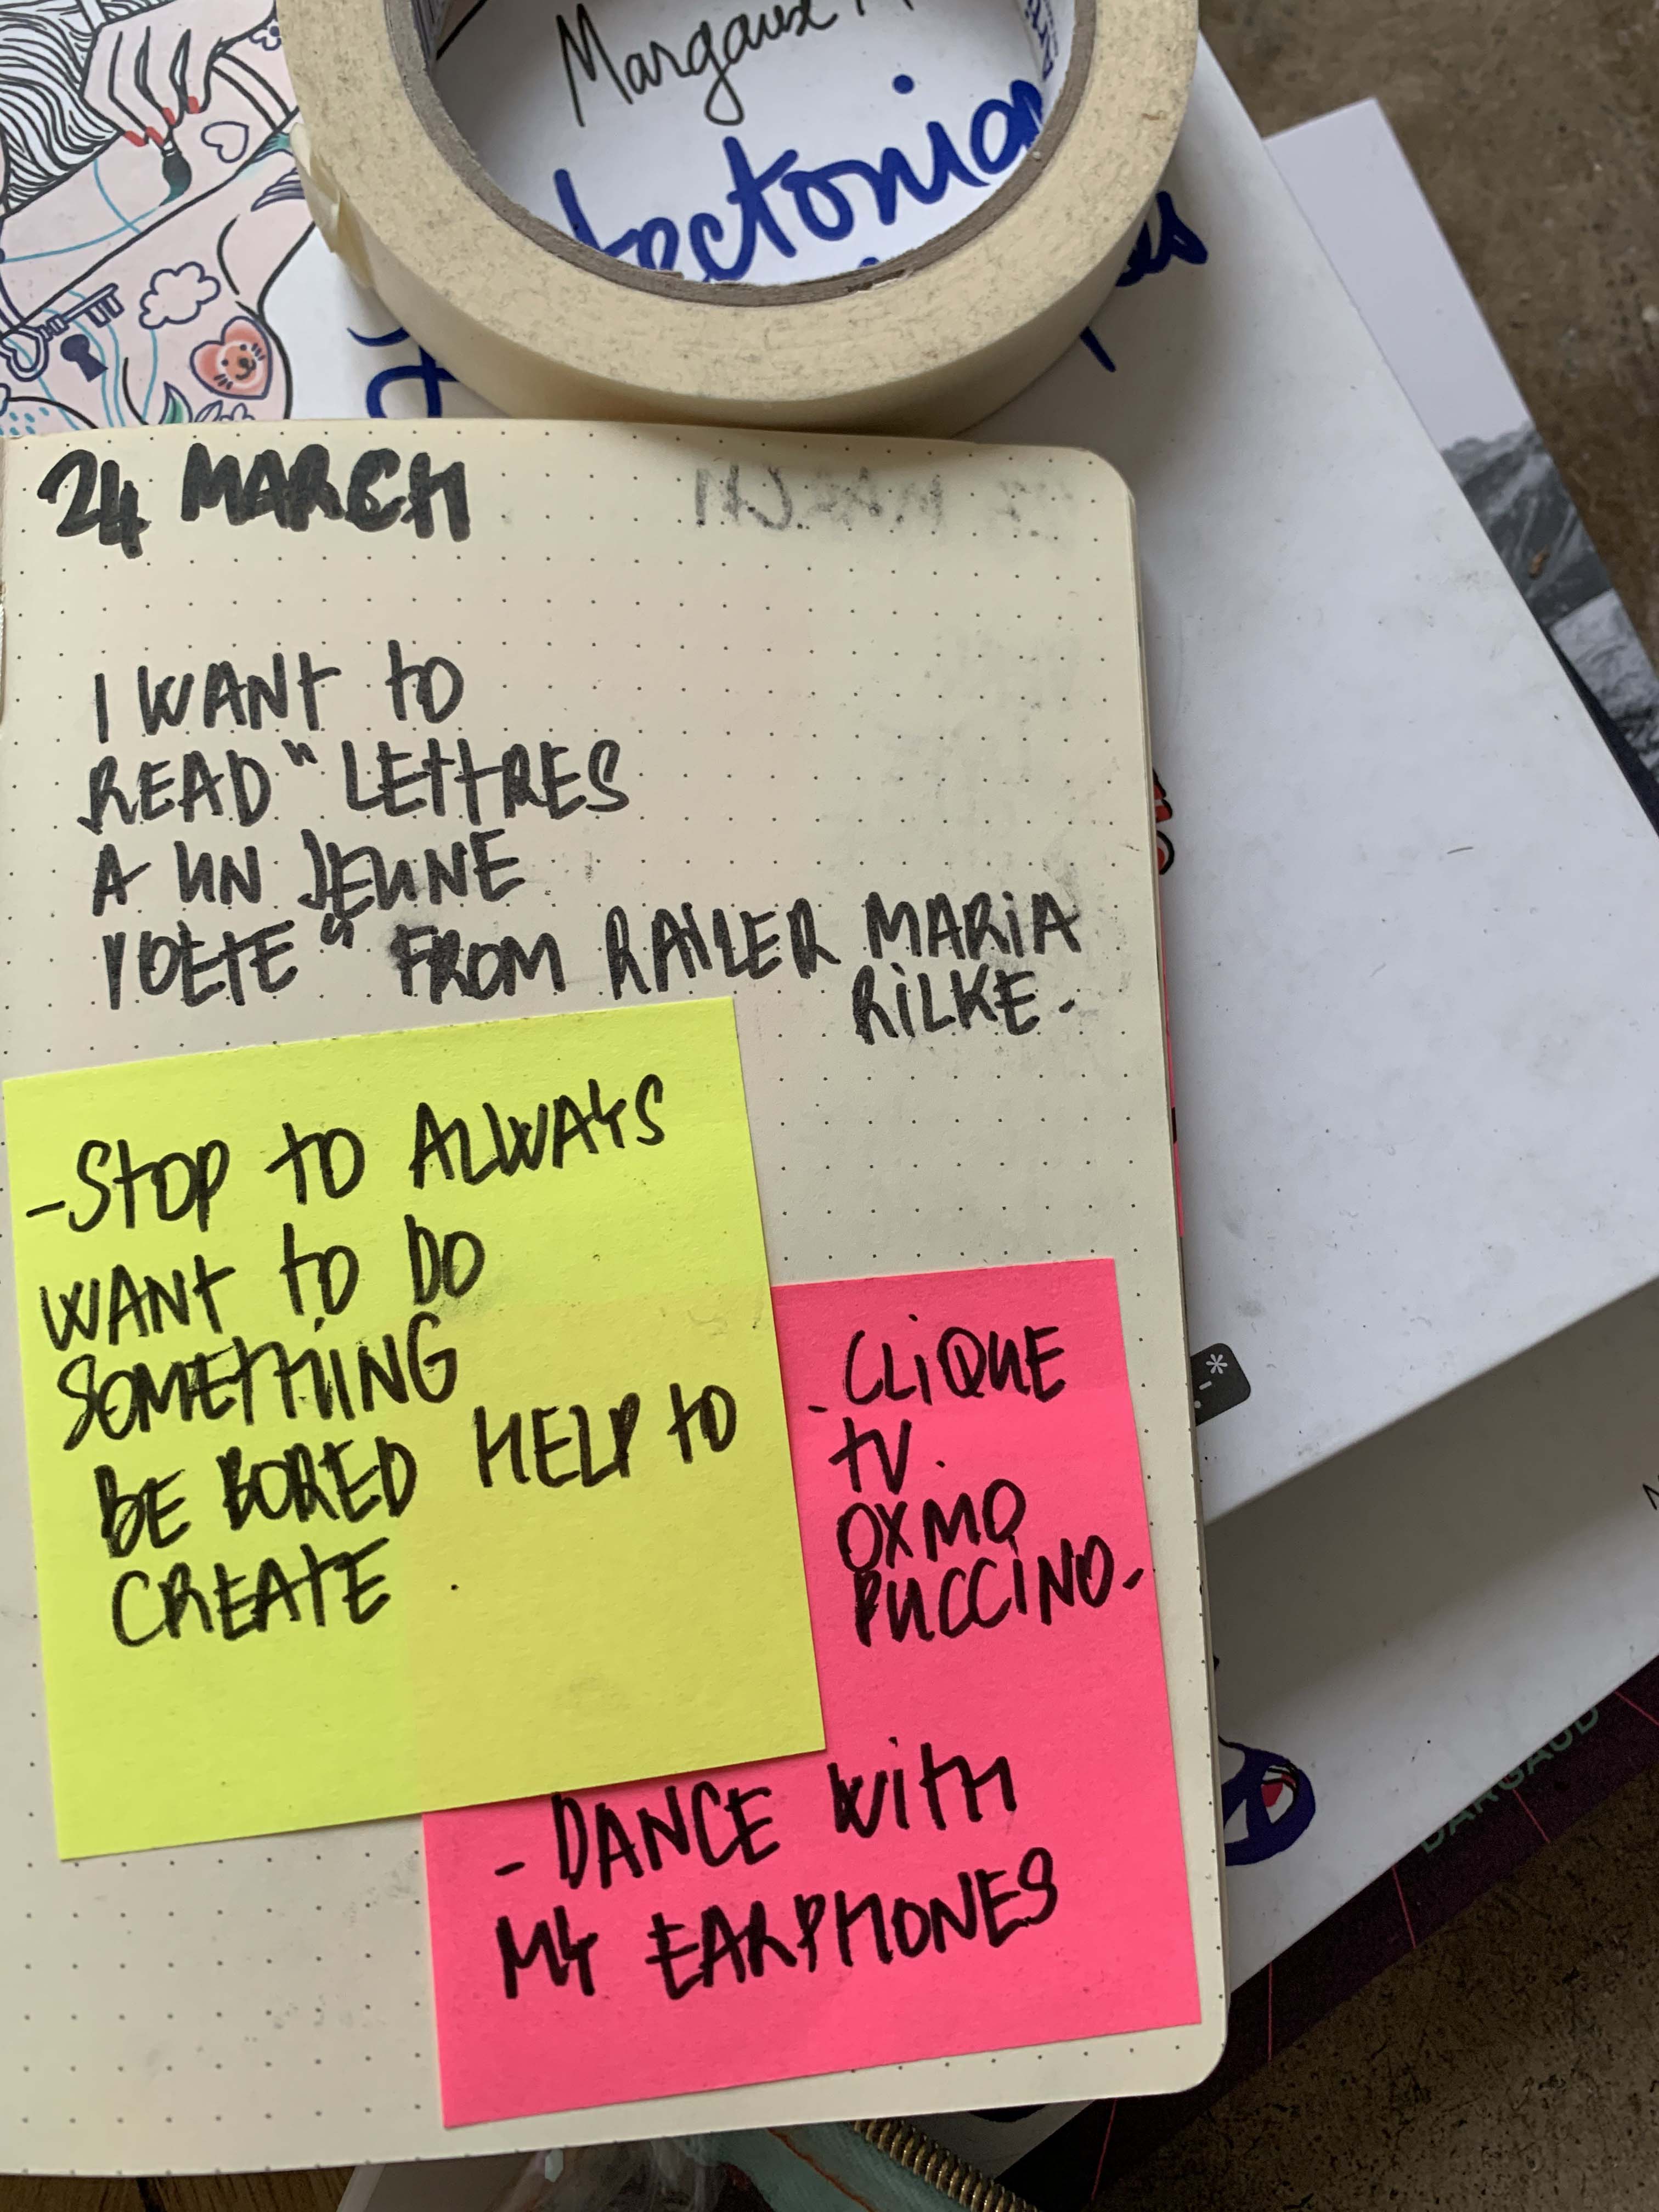 Margaux
tectonia
24 MARCH
I WANT TO
READ "LETTRES
A UN JEUNE
POETE" FROM RAILER MARIA
RILKE -
- STOP TO ALWAYS
WANT TO DO
SOMETHING
BE BORED HELP TO
CREATE.
- CLIQUE
TV.
OXMO
PUCCINO -
- DANCE WITH
MY EARPHONES
DARGAUD